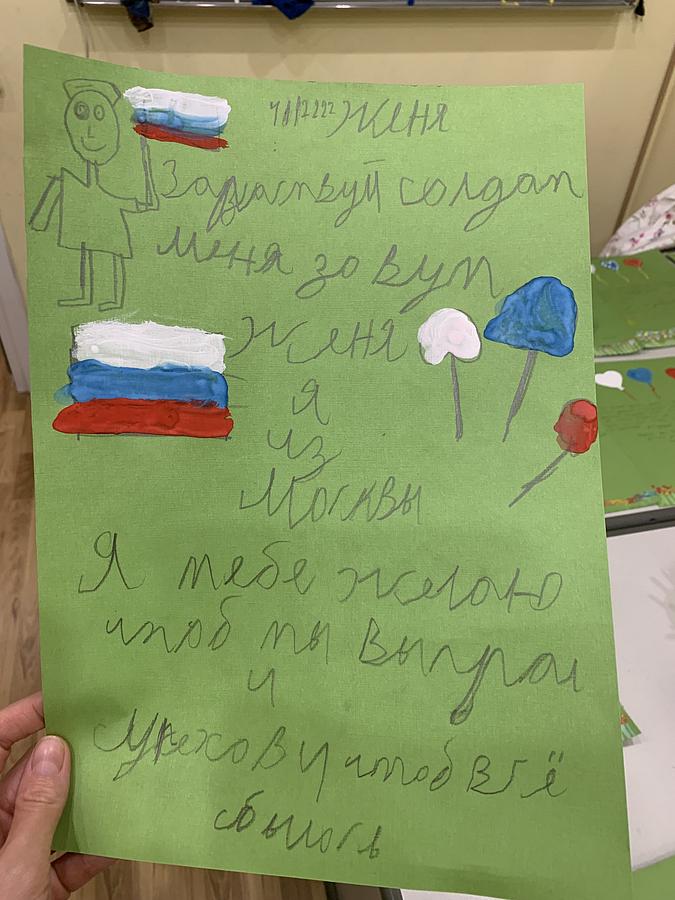 Женя
Здраствуй солдат
меня зовут
Женя
я
из
Москвы
Я тебе желаю
чтоб ты выиграл
и
чтоб всё
сбылось